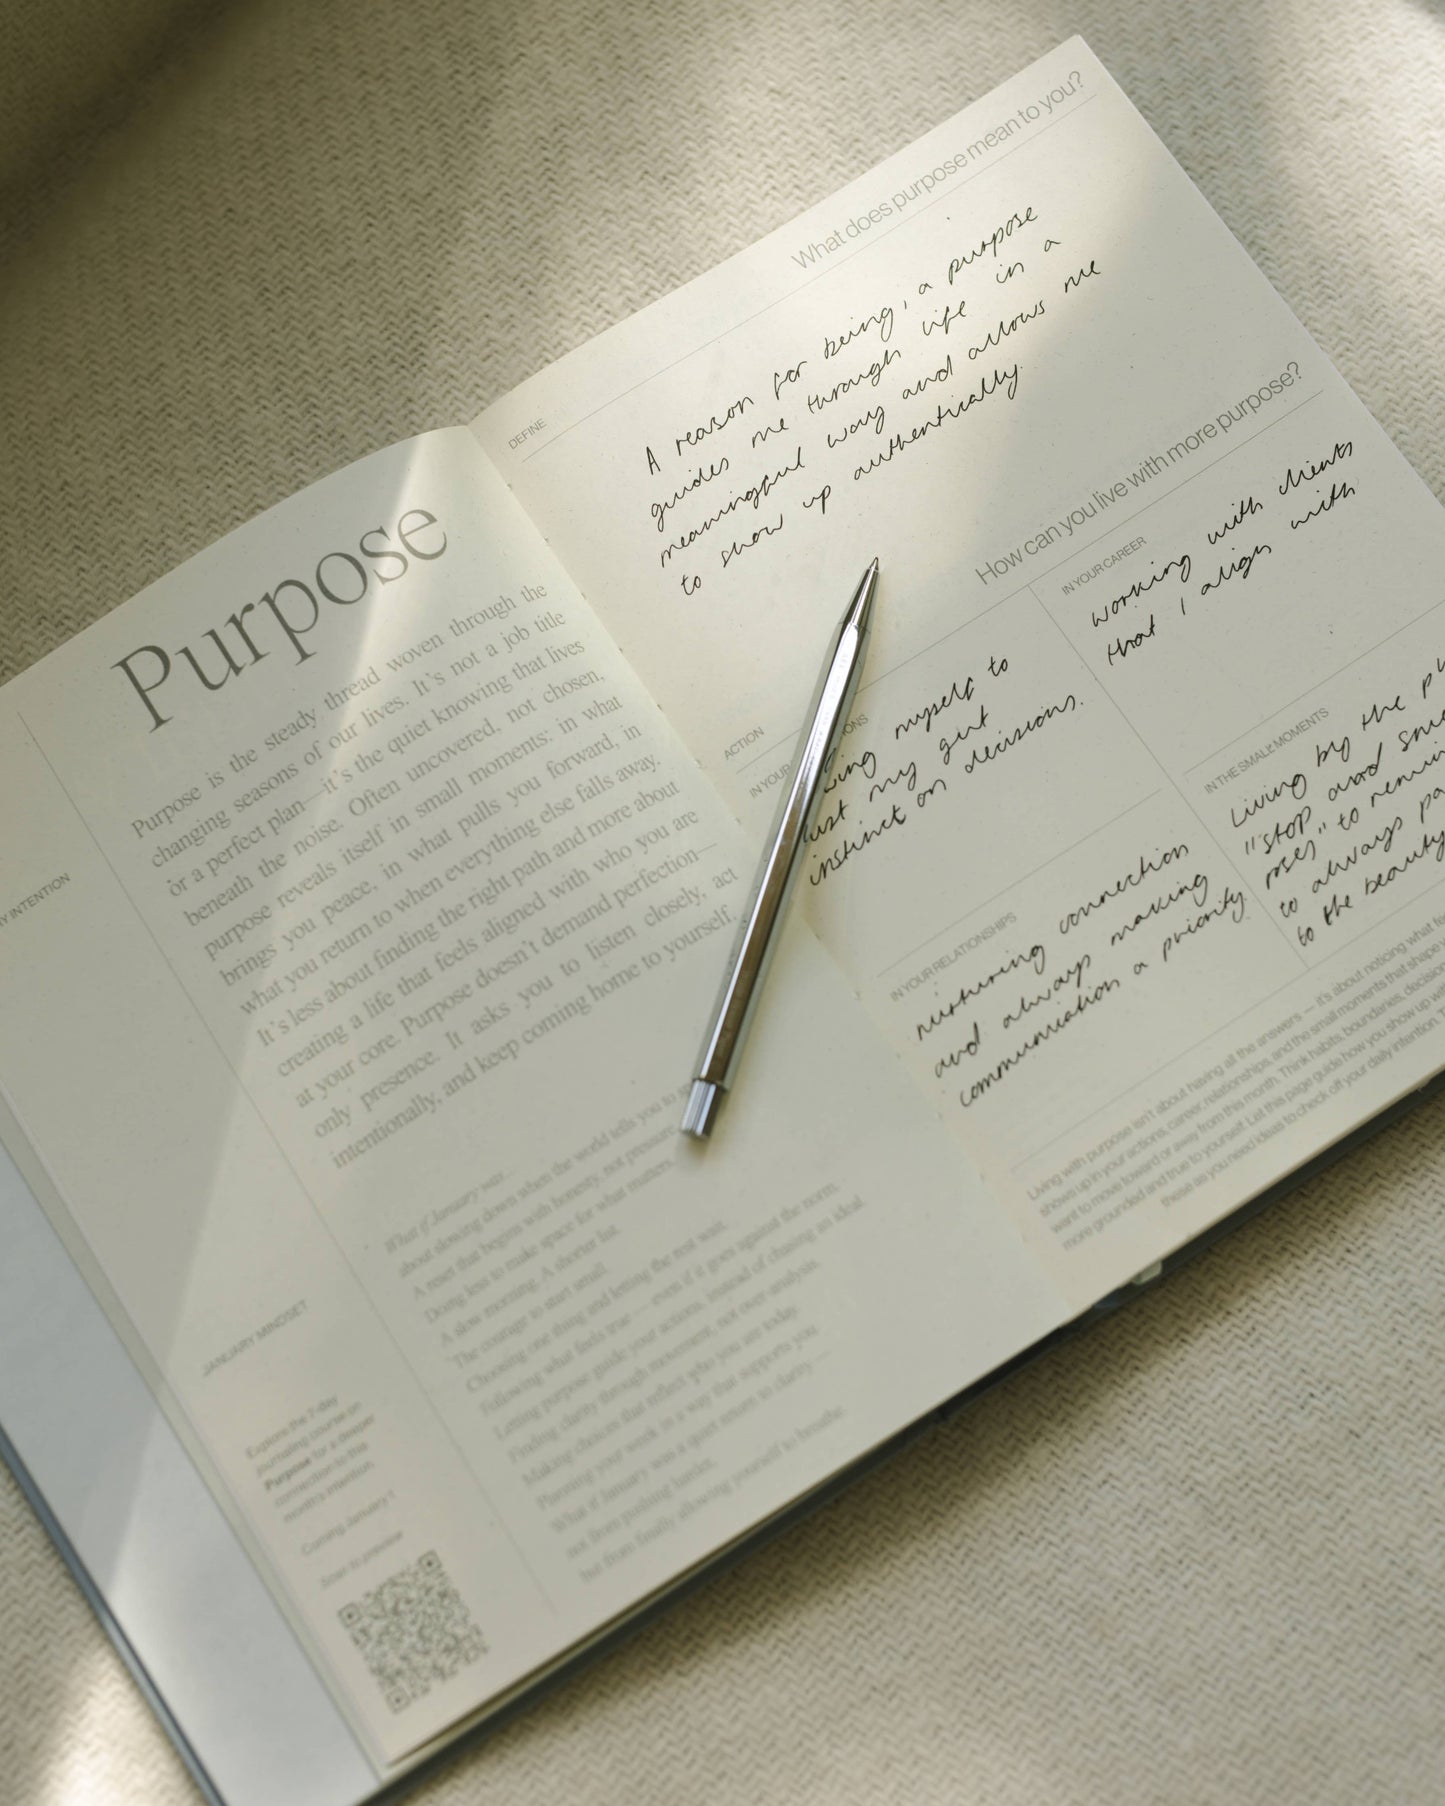 Purpose
Purpose is the steady thread woven through the
changing seasons of our lives. It's not a job title
or a perfect plan—it's the quiet knowing that lives
beneath the noise. Often uncovered, not chosen,
purpose reveals itself in small moments: in what
brings you peace, in what pulls you forward, in
what you return to when everything else falls away.
It's less about finding the right path and more about
creating a life that feels aligned with who you are
at your core. Purpose doesn't demand perfection—
only presence. It asks you to listen closely, act
intentionally, and keep coming home to yourself.
INTENTION
What if January was...
about slowing down when the world tells you to
A reset that begins with honesty, not pressure
Doing less to make space for what matters.
A slow morning. A shorter list.
The courage to start small.
Choosing one thing and letting the rest wait.
Following what feels true—even if it goes against the norm.
Letting purpose guide your actions, instead of chasing an ideal
Finding clarity through movement, not over-analysis.
Making choices that reflect who you are today.
Planning your week in a way that supports you.
What if January was a quiet return to clarity—
not from pushing harder,
but from finally allowing yourself to breathe.
JANUARY MINDSET
Explore the 7-day
journaling course on
Purpose for a deeper
connection to this
month's intention.
Coming January 1
Scan to preview
DEFINE
What does purpose mean to you?
A reason for being, a purpose
guides me through life in a
meaningful way and allows me
to show up authentically.
How can you live with more purpose?
ACTION
IN YOUR
myself to
my gut
instinct on decisions.
IN YOUR CAREER
working with clients
that I align with
IN YOUR RELATIONSHIPS
nurturing connection
and always making
communication a priority.
IN THE SMALL MOMENTS
Living by the
"stop and
roses" to
to always
to the beauty
Living with purpose isn't about having all the answers — it's about noticing what
shows up in your actions, career, relationships, and the small moments that shape
want to move toward or away from this month. Think habits, boundaries, decisions
more grounded and true to yourself. Let this page guide how you show up
these as you need ideas to check off your daily intention.